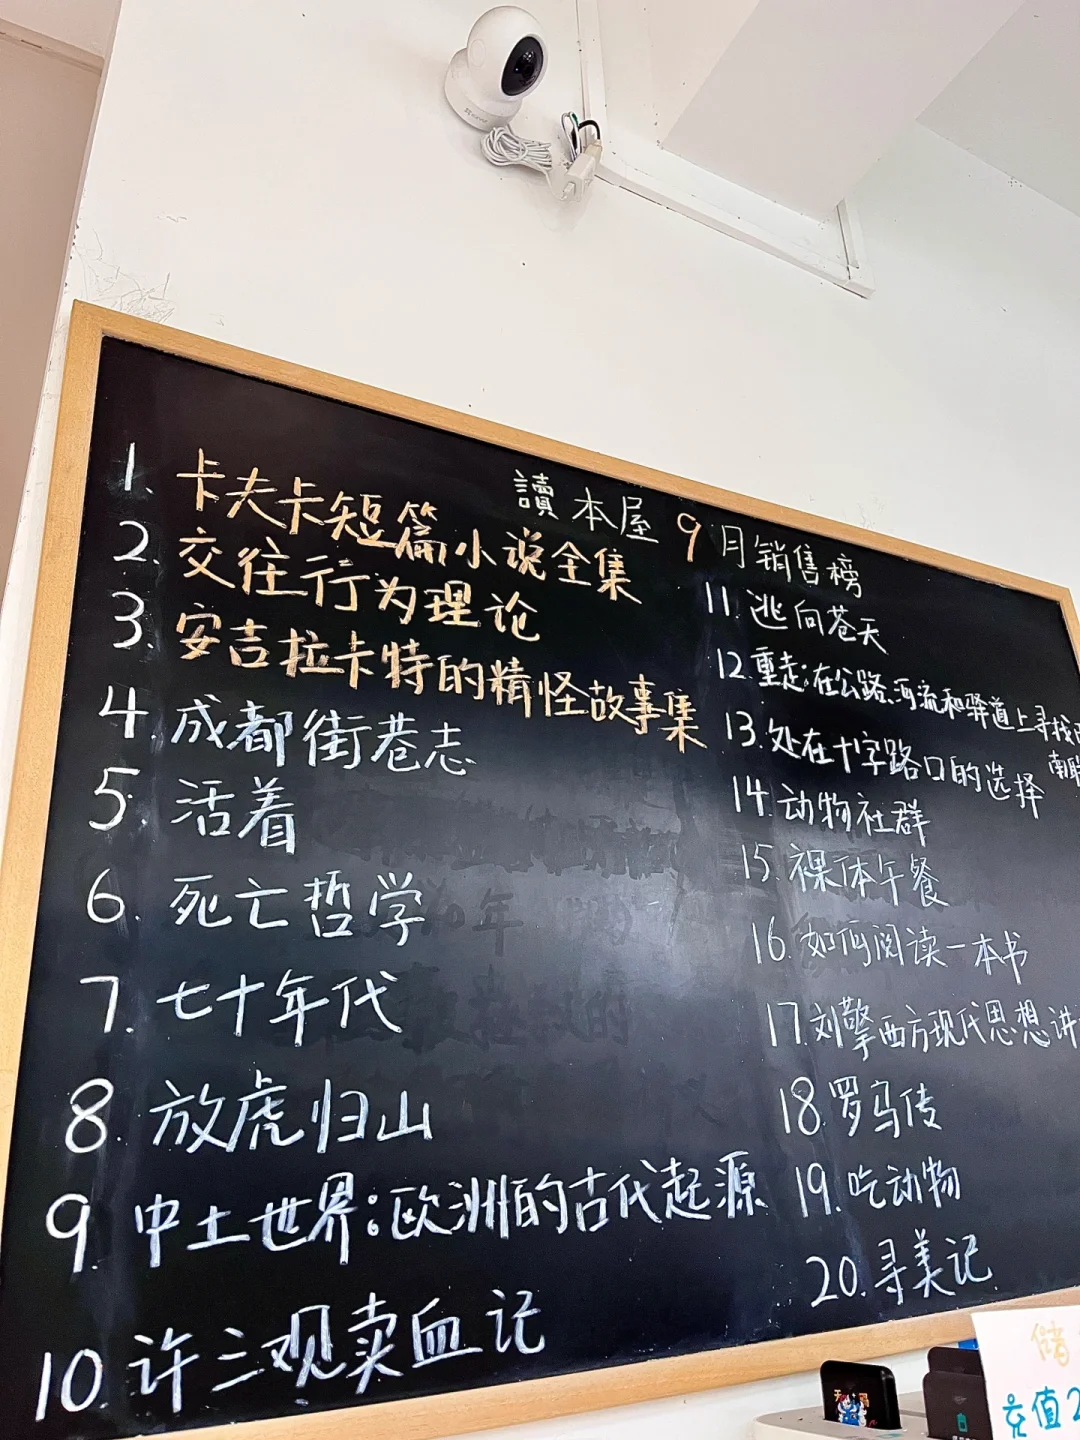 讀本屋9月销售榜
1. 卡夫卡短篇小说全集
2. 交往行为理论
3. 安吉拉卡特的精怪故事集
4. 成都街巷志
5. 活着
6. 死亡哲学
7. 七十年代
8. 放虎归山
9. 中土世界:欧洲的古代起源
10. 许三观卖血记
11. 逃向苍天
12. 重走:在公路、河流和驿道上寻找
13. 处在十字路口的选择
14. 动物社群
15. 裸体午餐
16. 如何阅读一本书
17. 刘擎西方现代思想讲
18. 罗马传
19. 吃动物
20. 寻美记
储
充值2